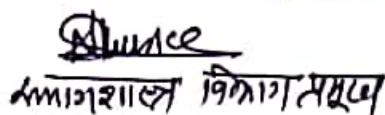 समाजशास्त्र विभाग प्रमुख